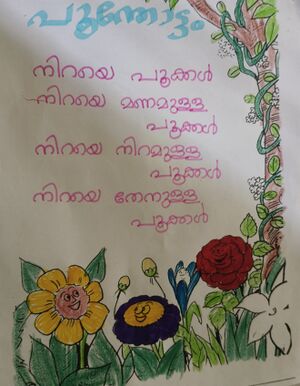 പൂന്തോട്ടം
നിറയെ പൂക്കൾ
നിറയെ മണമുള്ള
പൂക്കൾ
നിറയെ നിറമുള്ള
പൂക്കൾ
നിറയെ തേനുള്ള
പൂക്കൾ